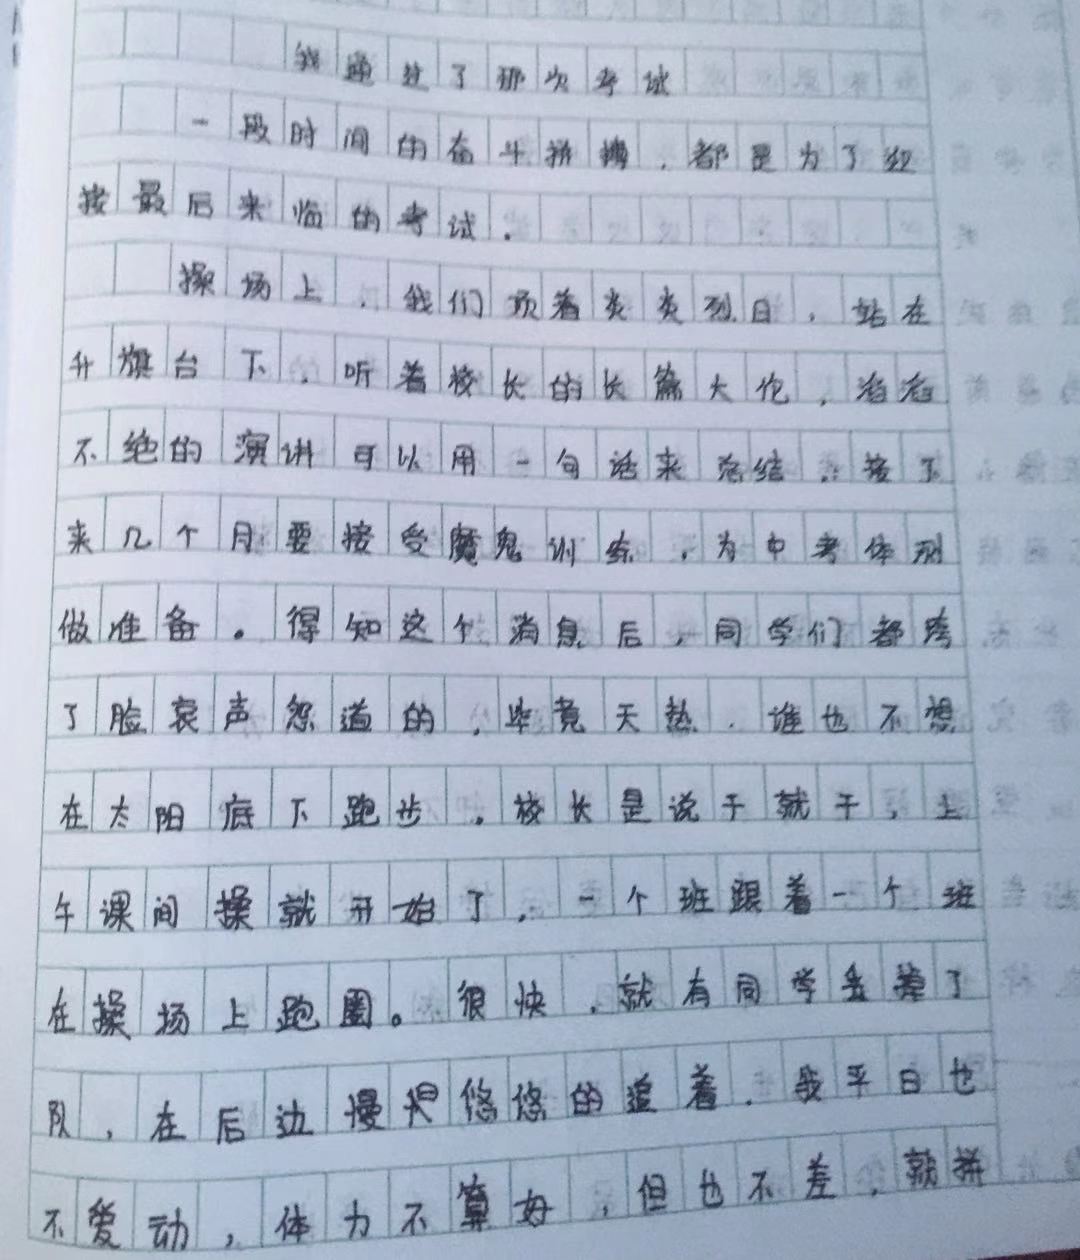 我通过了那次考试
一段时间的奋斗拼搏，都是为了迎
接最后来临的考试．
操场上，我们顶着炎炎烈日，站在
升旗台下，听着校长的长篇大伦，滔滔
不绝的演讲可以用一句话来总结：接下
来几个月要接受魔鬼训练，为中考体测
做准备。得知这个消息后，同学们都垮
了脸哀声怨道的，毕竟天热，谁也不想
在太阳底下跑步．校长是说干就干，上
午课间操就开始了，一个班跟着一个班
在操场上跑圈。很快，就有同学丢掉了
队，在后边慢悠悠的追着．我平日也
不爱动，体力不算好，但也不差，就拼